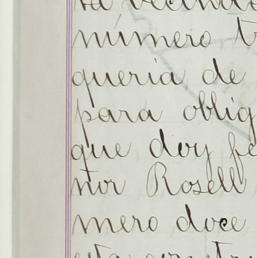 número
queria de
para oblig
que doy fe
ñor Rosell
mero doce